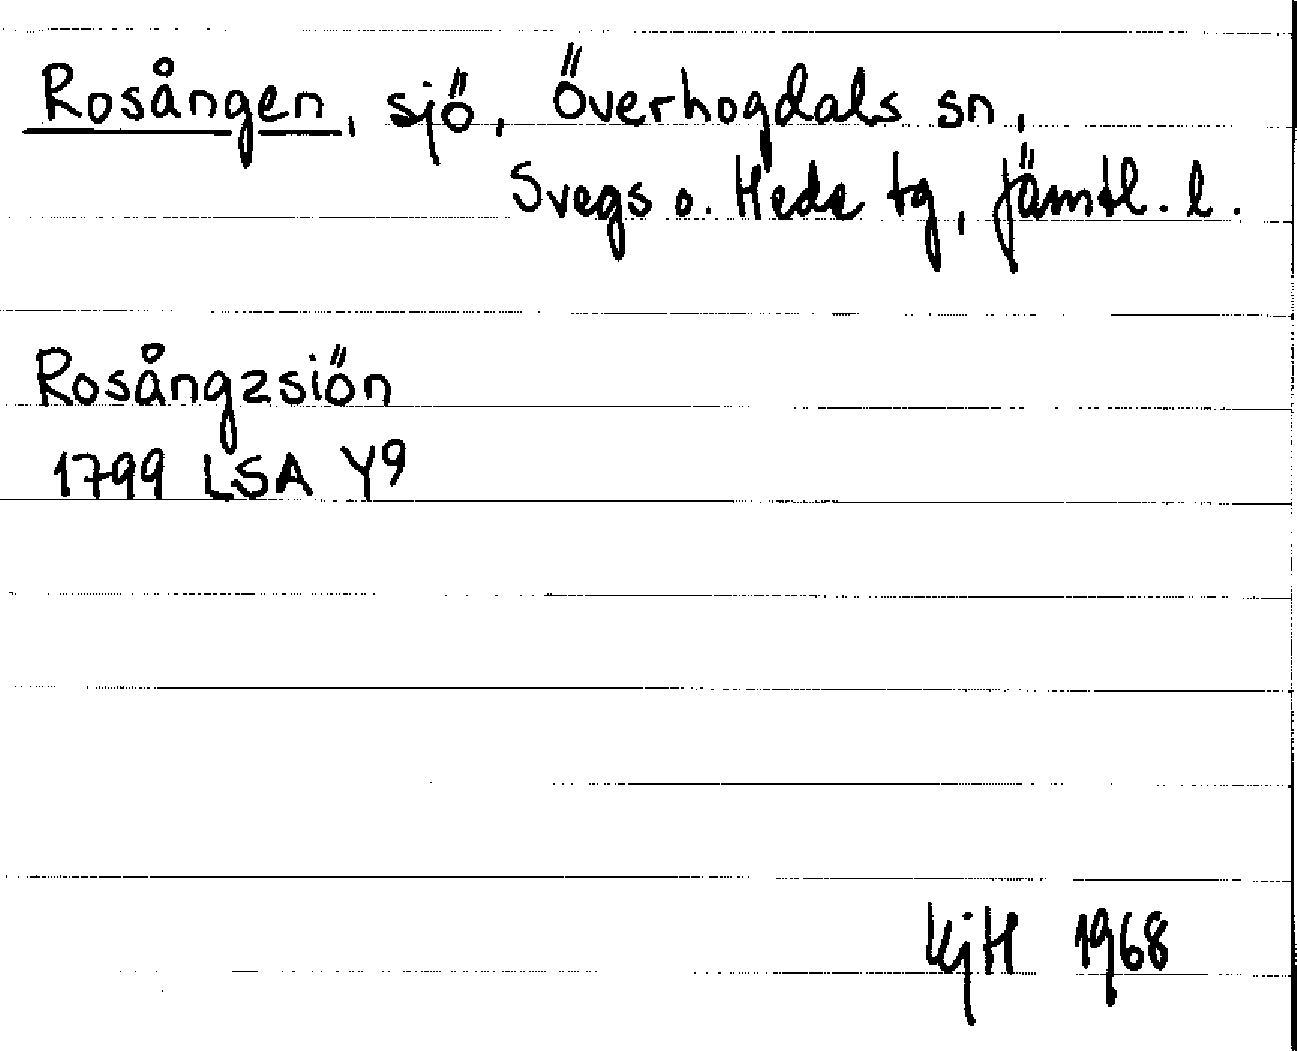 Rosången, sjö, Överhogdals sn,
Svegs o. Heds tg, Jämtl. l.
Rosångzsiön
1799 LSA Y9
KjH 1968